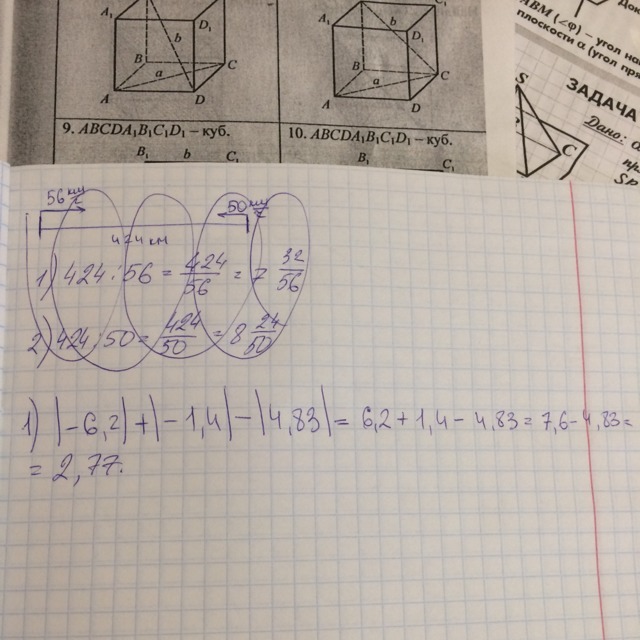 A₁ D₁ b B C a A D
C₁ A₁ b D₁ B C a A D
9. ABCDA₁B₁C₁D₁ – куб.
B₁ b C₁
10. ABCDA₁B₁C₁D₁ – куб.
B₁ C₁
ABM (∠φ) – угол
плоскости α (угол
ЗАДАЧА
Дано:
S
C
56 км/ч 50 км/ч
424 км
1) 424 : 56 = 424/56 = 7 32/56
2) 424 : 50 = 424/50 = 8 24/50
1) |-6,2| + |-1,4| - |4,83| = 6,2 + 1,4 - 4,83 = 7,6 - 4,83 =
= 2,77.